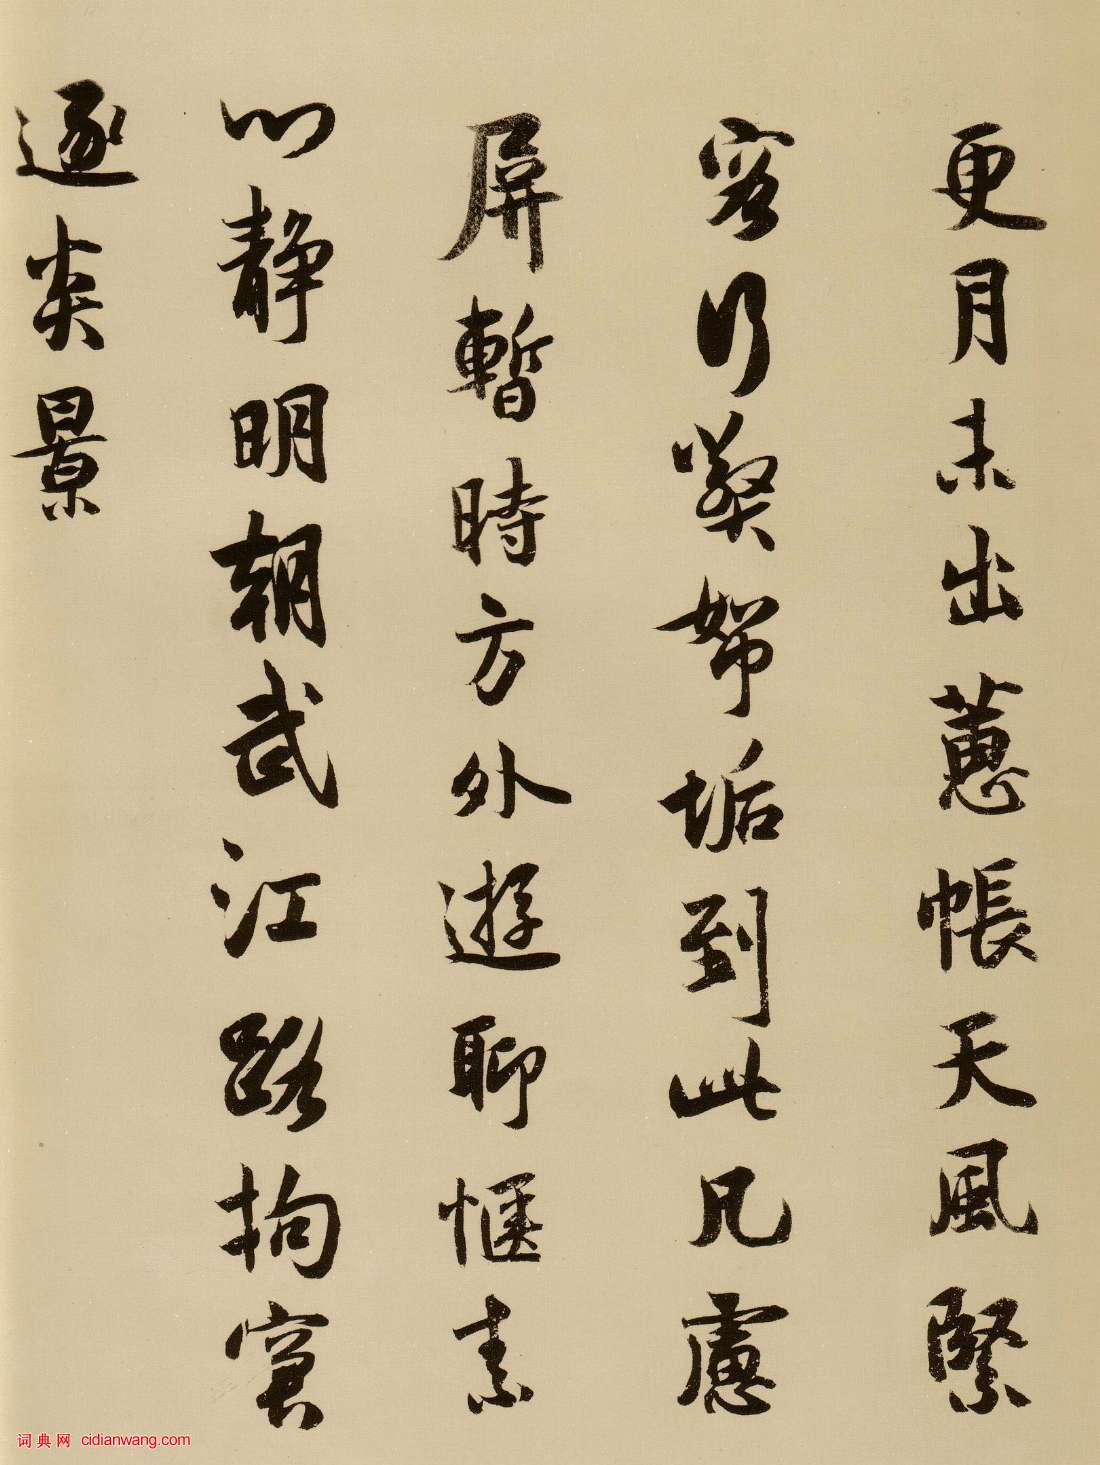 更月未出蕙帳天風緊
客行襟帑垢到此凡慮
屏暫時方外遊聊愜素
心静明朝武江路拘窘
逐炎景
词典网 cidianwang.com